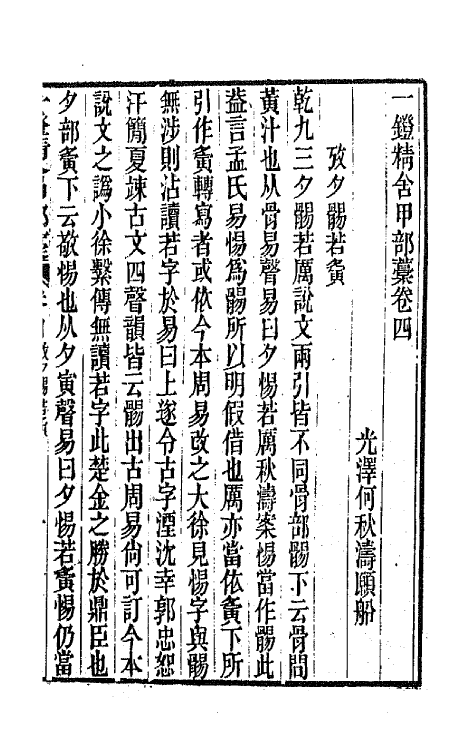 一鐙精舍甲部藁卷四
光澤何秋濤願船
攷夕䯜若夤
乾九三夕䯜若厲說文兩引皆不同骨部䯜下云骨間
黃汁也从骨易聲易曰夕惕若厲秋濤案惕當作䯜此
蓋言孟氏易惕爲䯜所以明假借也厲亦當依夤下所
引作夤轉寫者或依今本周易改之大徐見惕字與䯜
無涉則沾讀若字於易曰上遂令古字湮沈幸郭忠恕
汗簡夏竦古文四聲韻皆云䯜出古周易尙可訂今本
說文之譌小徐繫傳無讀若字此楚金之勝於鼎臣也
夕部夤下云敬惕也从夕寅聲易曰夕惕若夤惕仍當